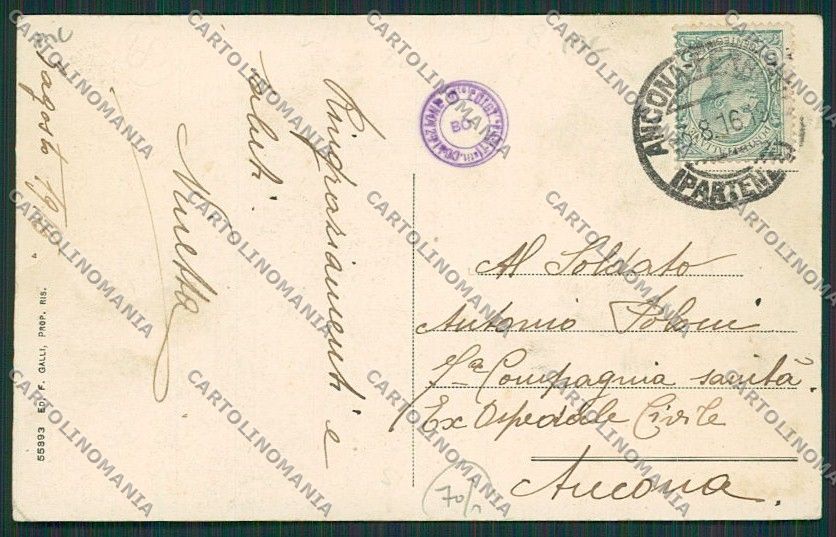 agosto 19
Ringraziamenti e
saluti.
Ninetta
55893 ED. F. GALLI, PROP. RIS.
BO
ANCONA
8.16
(PARTENZE)
Al Soldato
Antonio Poloni
7a Compagnia sanità.
Ex Ospedale Civile
Ancona.
70/
CARTOLINOMANIA